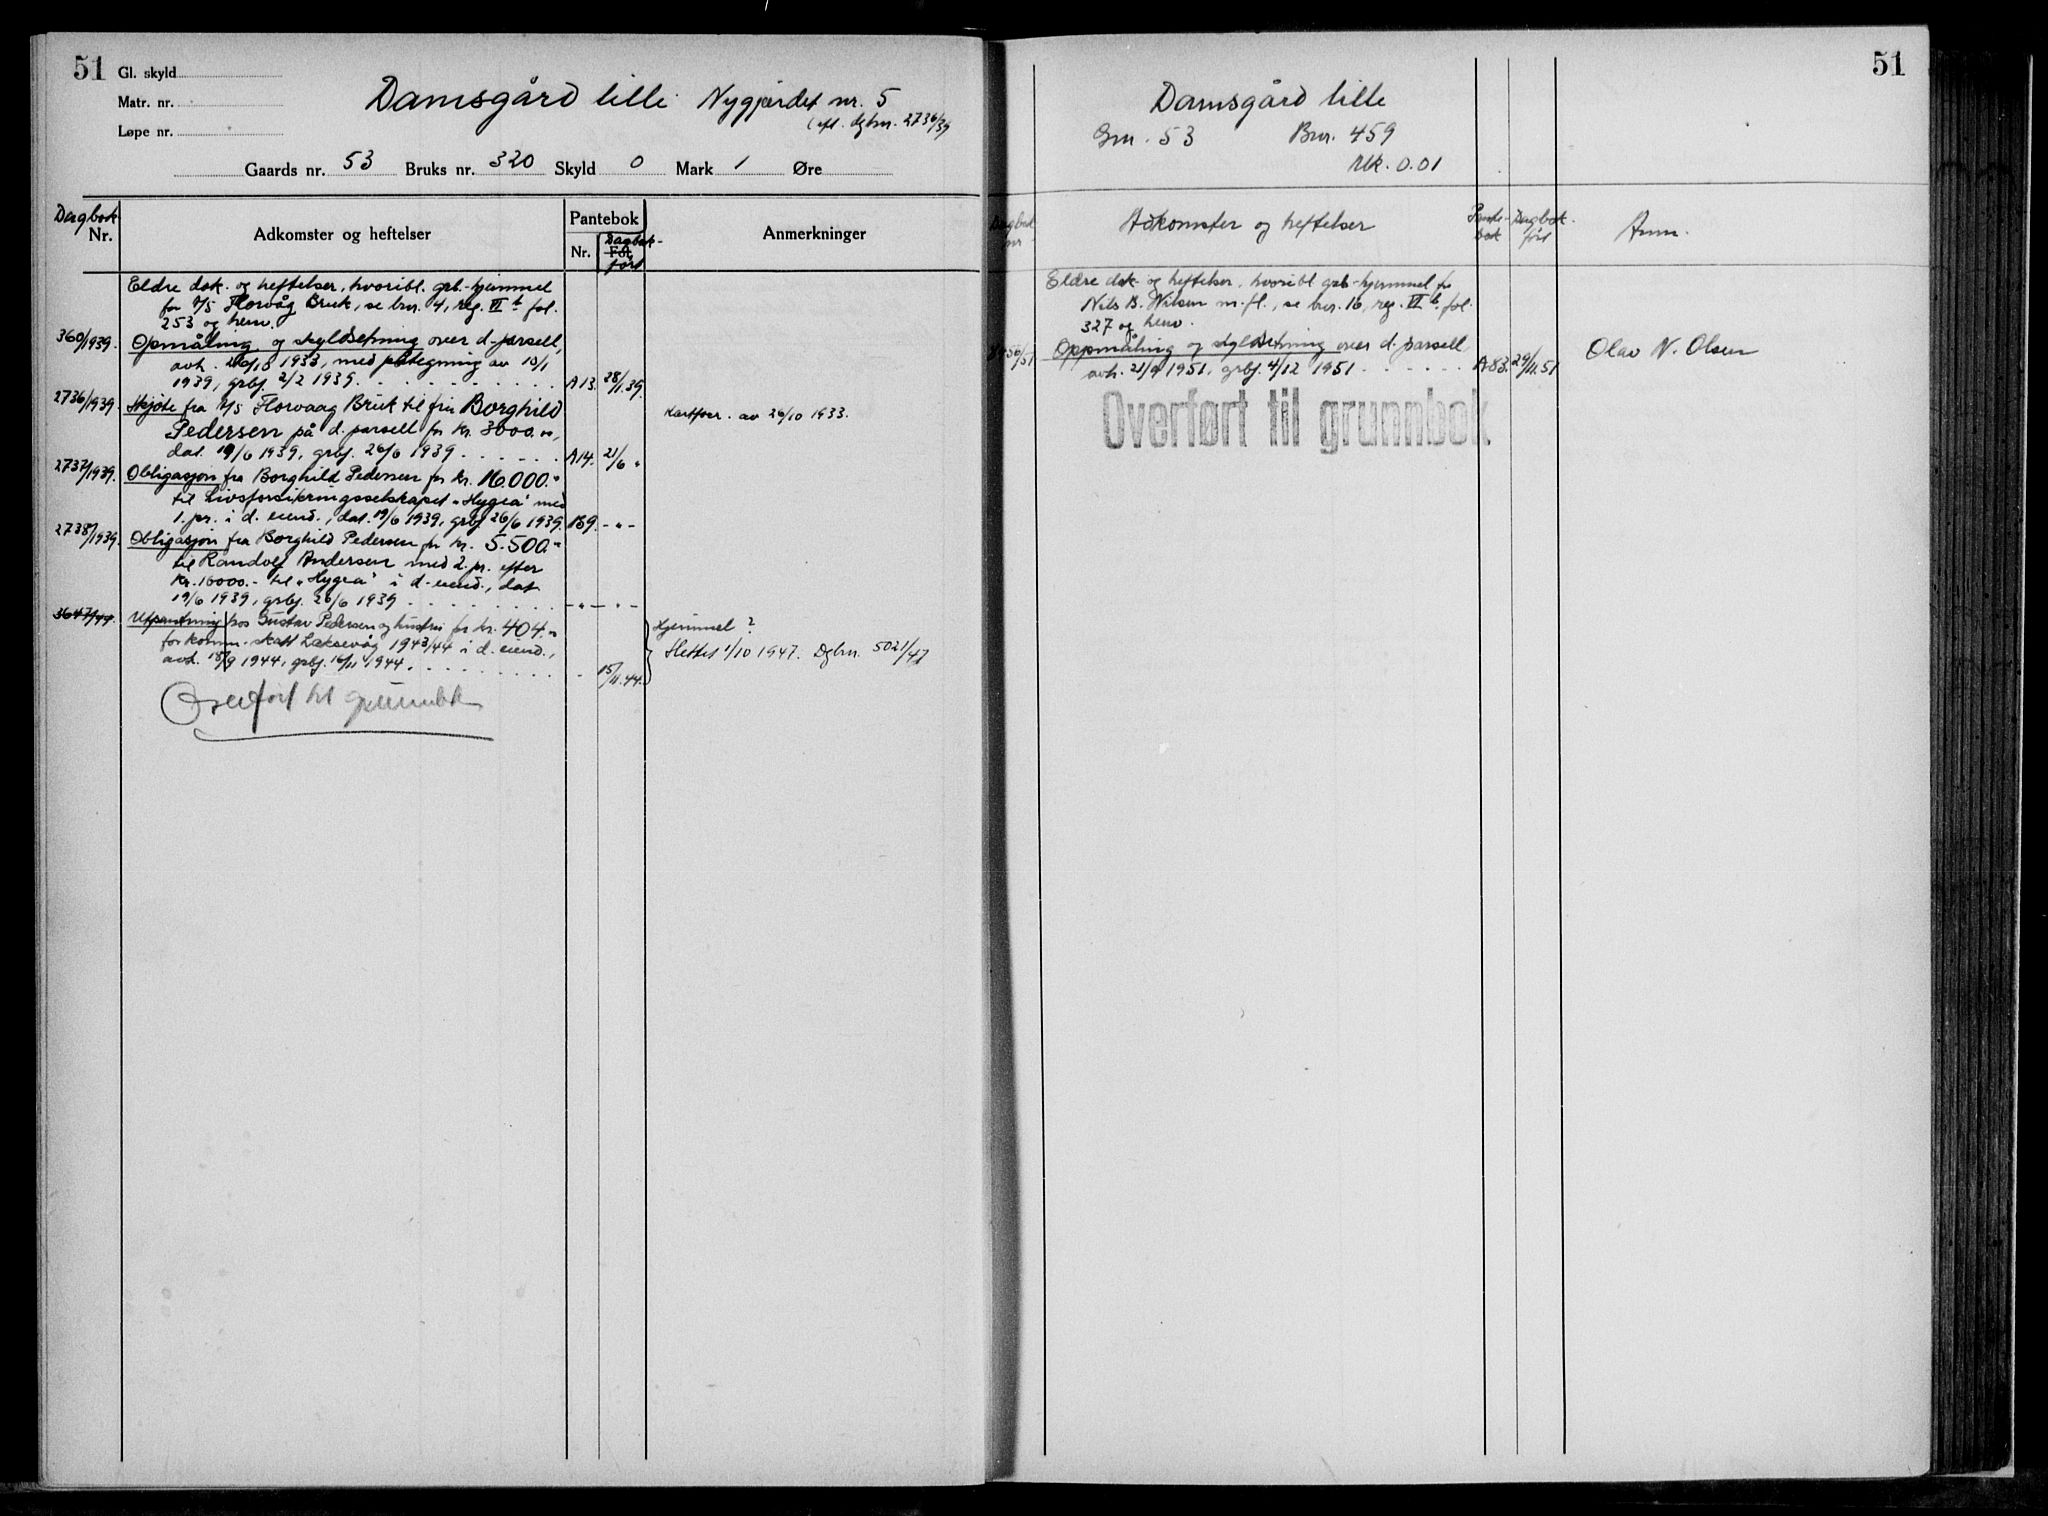 51
Gl. skyld
Matr. nr.
Løpe nr.
Damsgård lille Nygjærdet nr. 5
(efl. dgbnr. 2736/39
Gaards nr. 53 Bruks nr. 320 Skyld 0 Mark 1 Øre
Dagbok Nr.
Adkomster og heftelser
Pantebok
Nr.
Fol.
Dagbok-ført
Anmerkninger
Eldre dok. og heftelser, hvoribl. grb-hjemmel
for A/S Florvåg Bruk, se bnr. 4, reg. VI b fol.
253 og henv.
360/1939. Opmåling og skyldsetning over d. parsell,
avh. 26/10 1933, med påtegning av 10/1
1939, grbf. 2/2 1939. A13. 28/1.39.
2736/1939. Skjøte fra A/S Florvaag Bruk til fru Borghild
Kartforr. av 26/10 1933.
Pedersen på d. parsell for kr. 3000.00,
dat. 19/6 1939, grbf. 26/6 1939 A14. 21/6 "
2737/1939. Obligasjon fra Borghild Pedersen for kr. 16000.-
til Livsforsikringsselskapet "Hygea" med
1. pr. i d. eiend., dat. 19/6 1939, grbf 26/6 1939. B9. - " -
2738/1939. Obligasjon fra Borghild Pedersen for kr. 5.500.-
til Randolf Andersen med 2. pr. efter
kr. 16000.- til "Hygea" i d. eiend., dat
19/6 1939, grbf. 26/6 1939 - " - " -
3647/44. Utpantning hos Gustav Pedersen og hustru for kr. 404.-
Hjemmel?
for komm. skatt Laksevåg 1943/44 i d. eiend.,
Slettet 1/10 1947. Dgbnr. 5021/47
avh. 18/9 1944, grbf. 16/11 1944. 15/11.44.
Overført til grunnbok
51
Damsgård lille
Gnr. 53 Bnr. 459
Mk. 0.01
Dagbok nr
Adkomster og heftelser
Pante-bok
Dagbok ført
Anm.
Eldre dok. og heftelser, hvoribl grb-hjemmel for
Nils B. Nilsen m.fl., se bnr. 16, reg. VI b. fol.
327 og henv.
56/51 Oppmåling og skyldsetning over d. parsell
Olav N. Olsen
avh. 21/9 1951, grbf. 4/12 1951 A83. 29/11.51
Overført til grunnbok